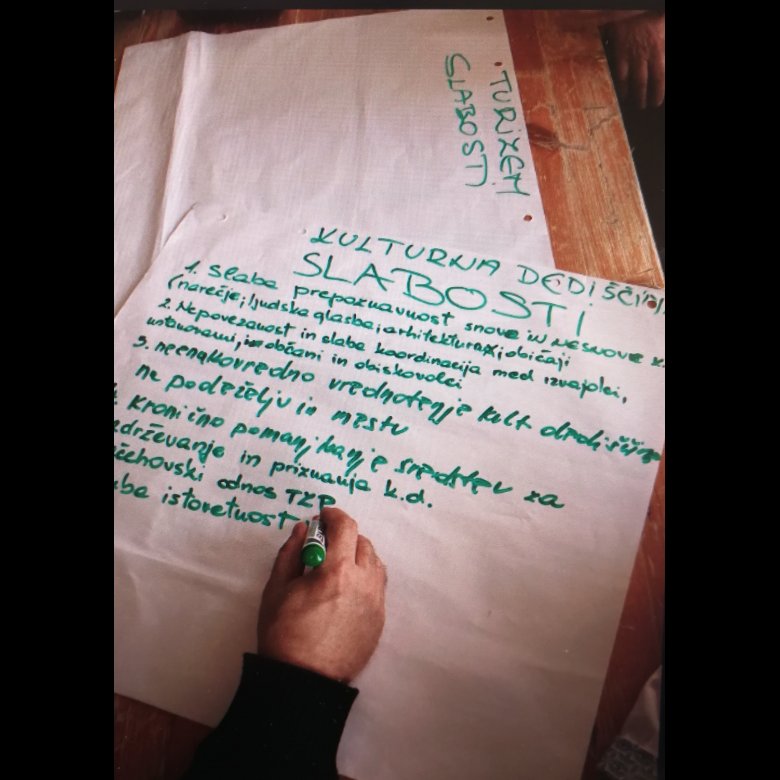 TURIZEM
SLABOSTI
KULTURNA DEDIŠČI
SLABOSTI
1. slaba prepoznavnost snove in nesnove k.
(narečje, ljudska glasba, arhitektura, običaji
2. Nepovezanost in slaba koordinacija med izvajalci,
ustanovami, občani in obiskovalci
3. neenakovredno vrednotenje kult dediščine
na podeželju in mestu
kronično pomanjkanje sredstev za
drževanje in priznanja k.d.
čehovski odnos TZP
ba istovetnost